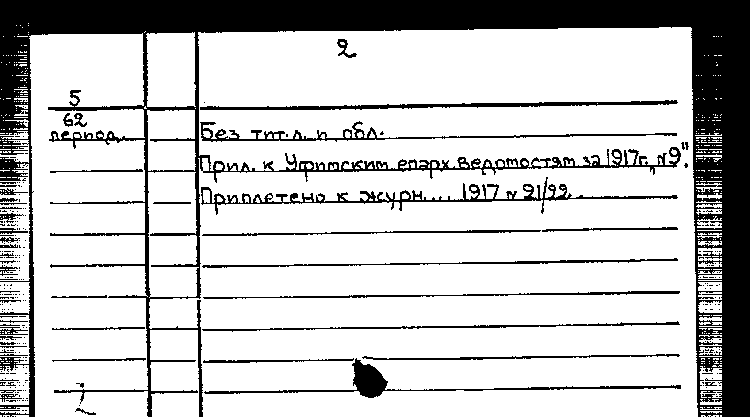 2
5
62
период.
Без тит. л. и обл.
Прил. к Уфимским епарх. ведомостям за 1917г., №9".
Приплетено к журн.... 1917 № 21/22.
2